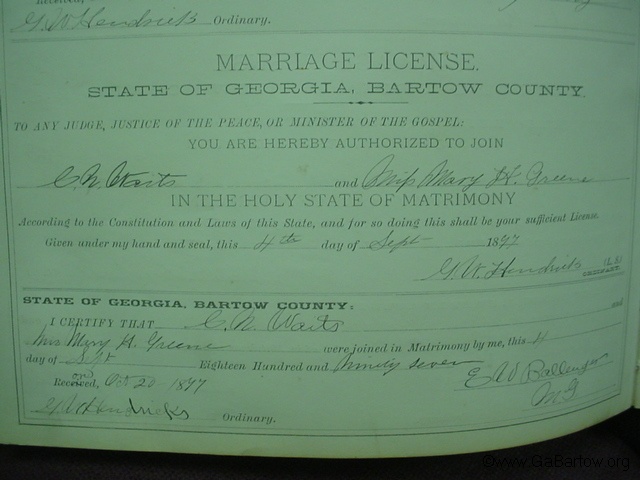 Received,
G. W. Hendricks Ordinary.
MARRIAGE LICENSE.
STATE OF GEORGIA, BARTOW COUNTY.
TO ANY JUDGE, JUSTICE OF THE PEACE, OR MINISTER OF THE GOSPEL:
YOU ARE HEREBY AUTHORIZED TO JOIN
C. N. Waits and Miss Mary H. Greene
IN THE HOLY STATE OF MATRIMONY
According to the Constitution and Laws of this State, and for so doing this shall be your sufficient License.
Given under my hand and seal, this 4th day of Sept 1897
G. W. Hendricks (L. S.)
ORDINARY.
STATE OF GEORGIA, BARTOW COUNTY:
I CERTIFY THAT C. N. Waits and
Miss Mary H. Greene were joined in Matrimony by me, this 4
day of Sept Eighteen Hundred and Ninety seven
Received, Oct 20 1897 E A Ballenger
M. G.
G. W. Hendricks Ordinary.
©www.GaBartow.org